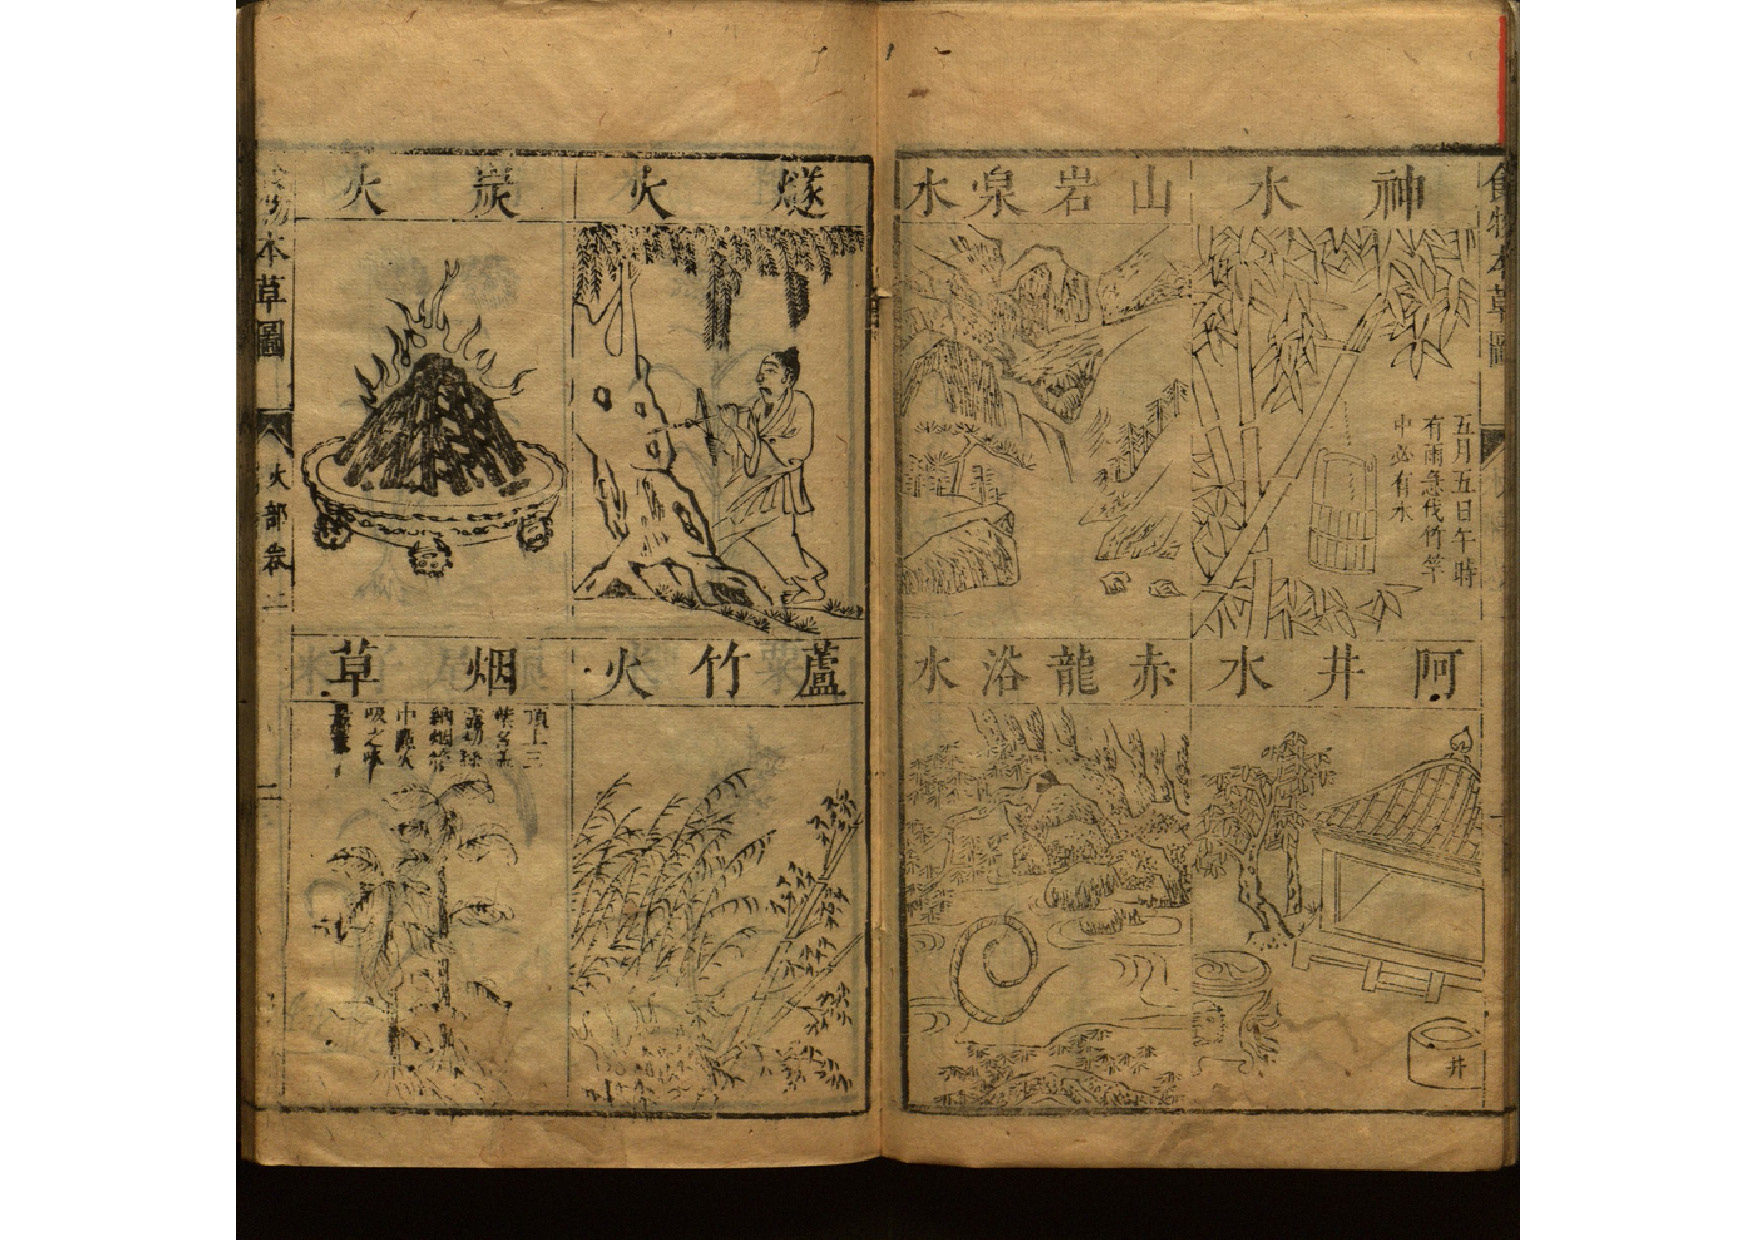 食物本草圖
神水
五月五日午時
有雨急伐竹竿
中必有水
山岩泉水
阿井水
井
赤龍浴水
燧火
炭火
蘆竹火
烟草
頂上三
納烟管
中點火
吸之
本草圖
火部卷二
二